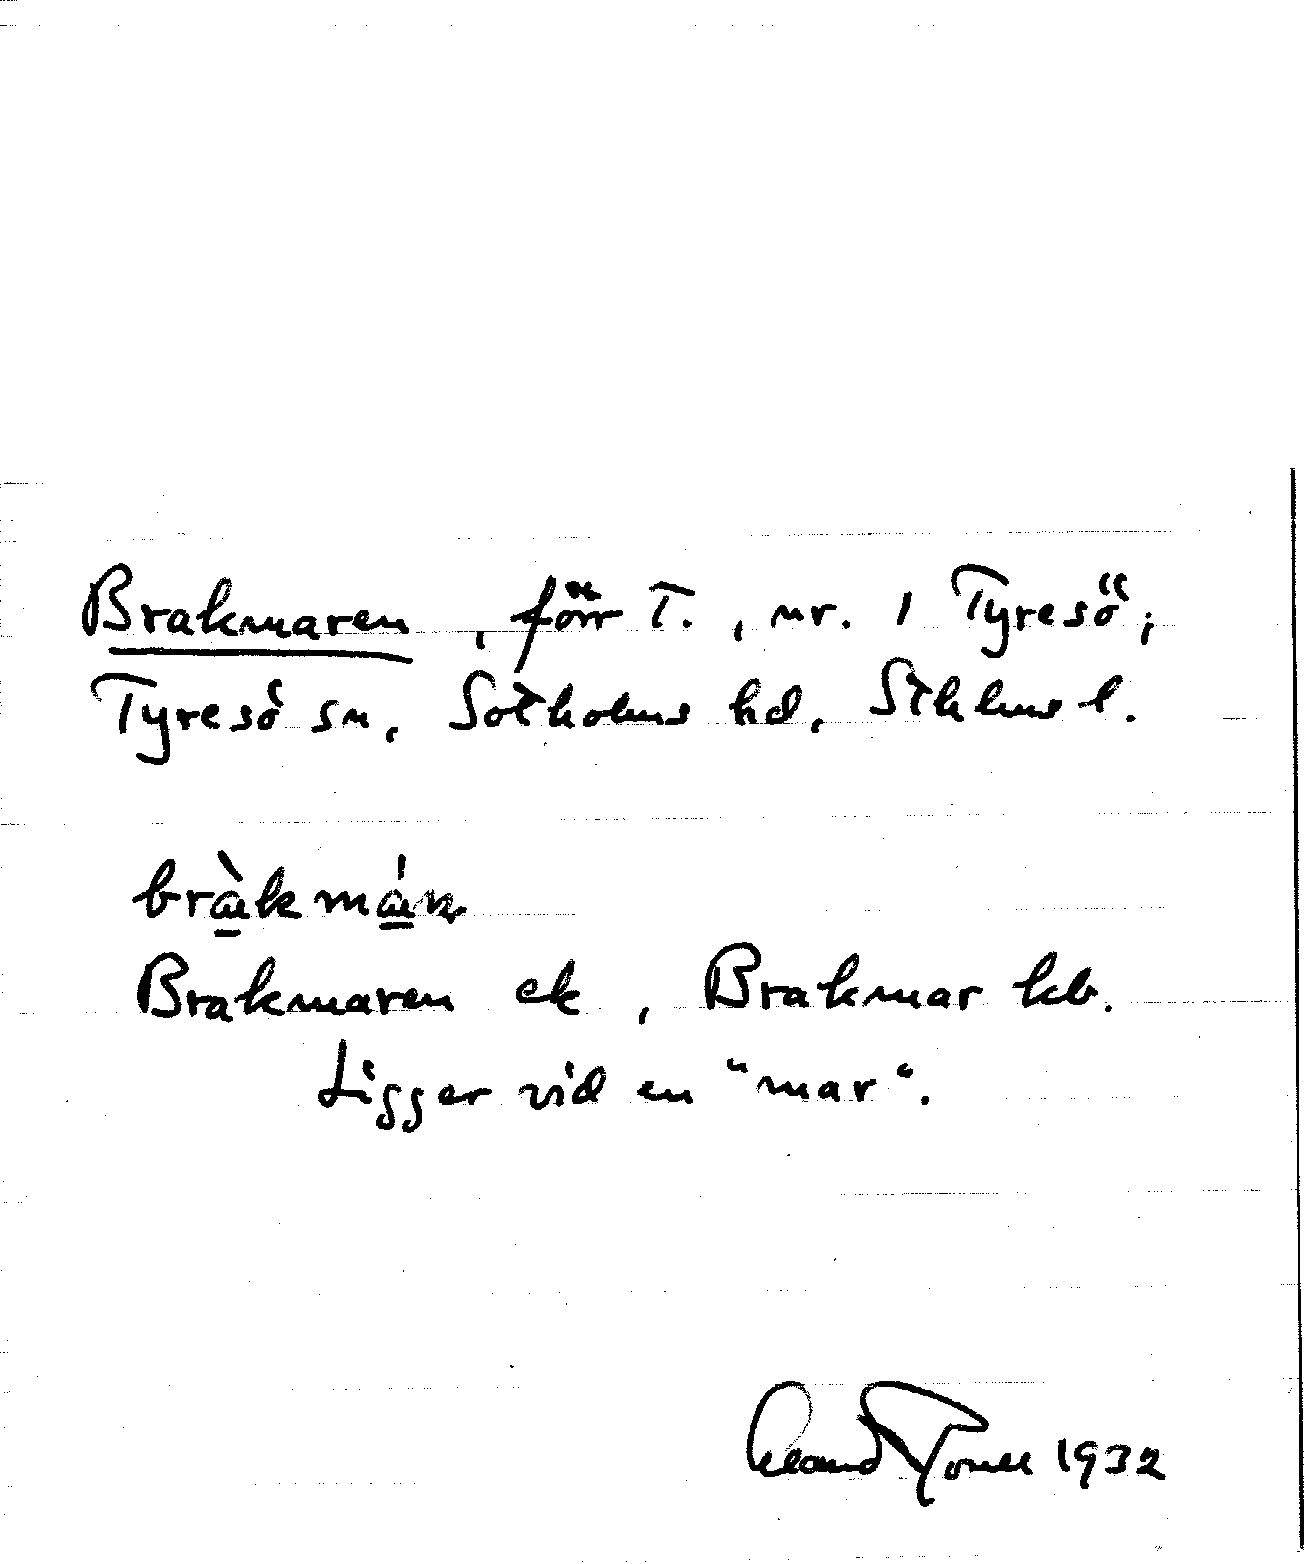 Brakmaren, förr T., nr. 1 Tyresö;
Tyresö sn, Sotholms hd, Sthlms l.
Brakmaren ek, Brakmar kb.
Ligger vid en "mar".
1932